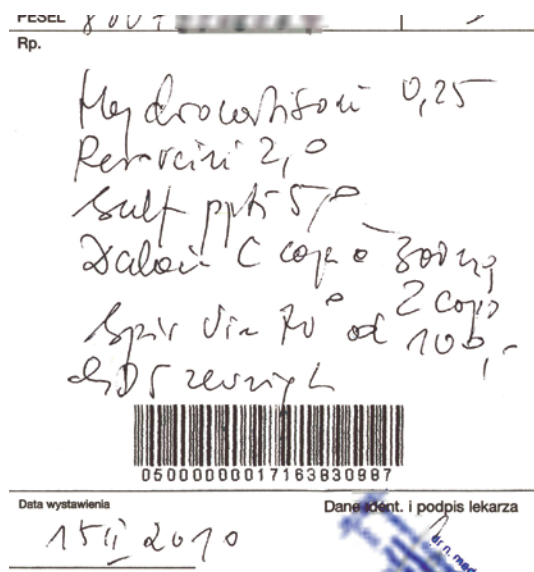 PESEL 800
Rp.
Hydrocortisoni 0,25
Resorcini 2,0
Sulf ppti 5,0
Dalacin C caps à 300 mg
2 caps
Spir Vin 70° ad 100,-
MDS zewn
05000000017163830987
Data wystawienia
Dane ident. i podpis lekarza
15 II 2010
dr n. med